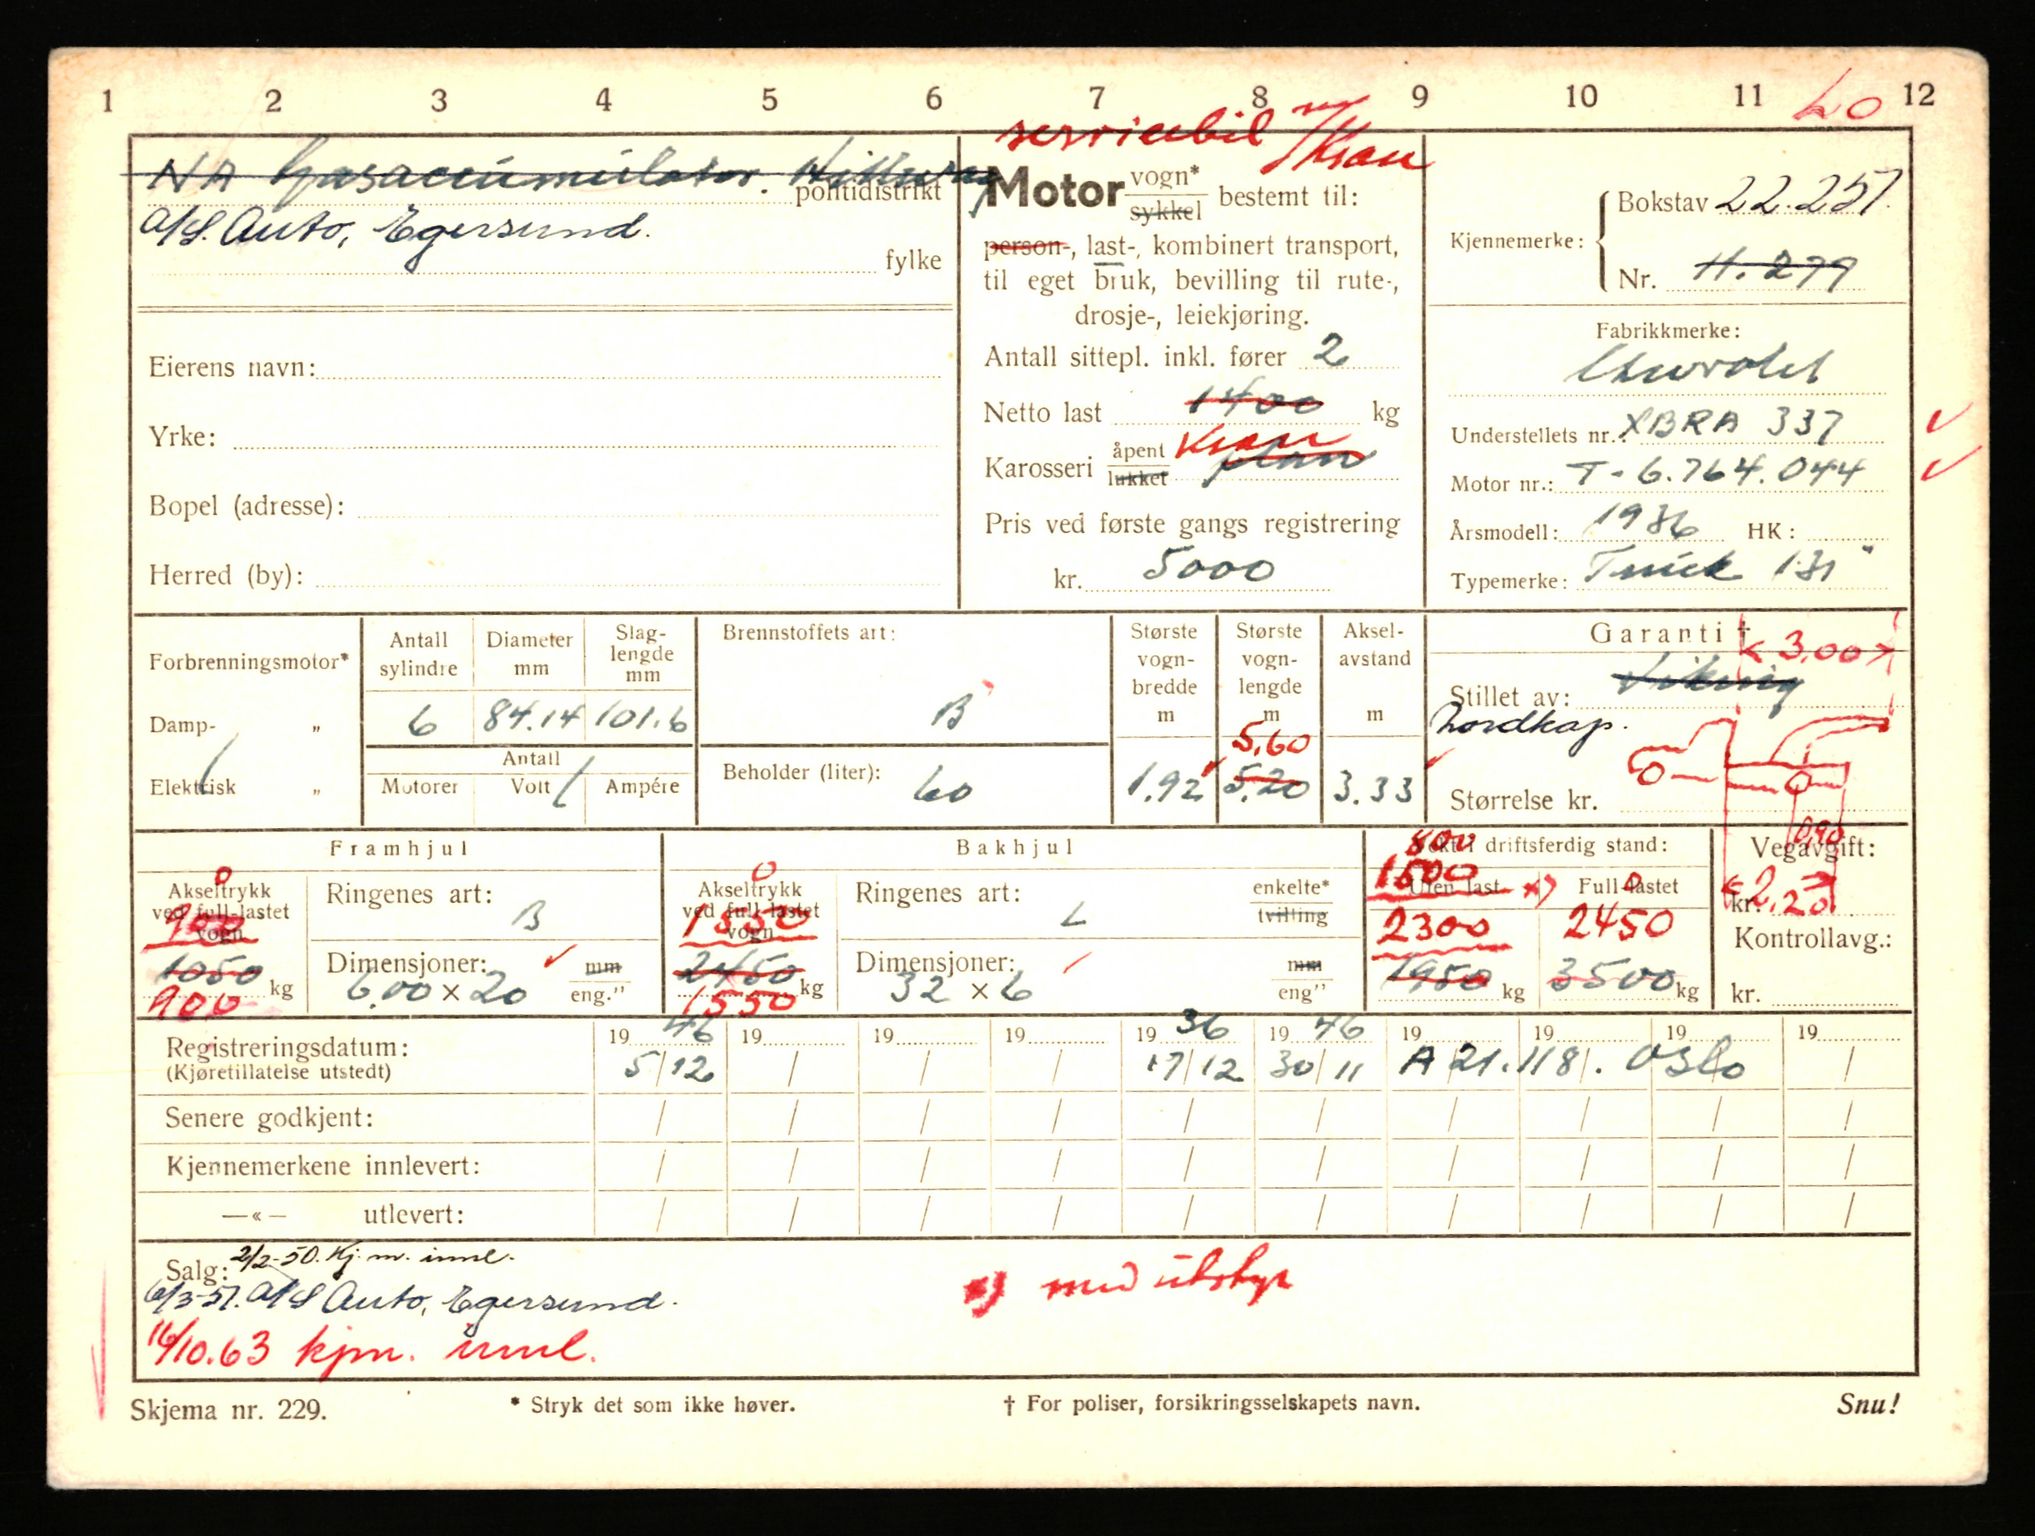 1 2 3 4 5 6 7 8 9 10 11 12
Lo
servicebil m/Kran
NA Gasaccumulator.
politidistrikt
A/S. Auto, Egersund.
fylke
Eierens navn:
Yrke:
Bopel (adresse):
Herred (by):
Motor vogn* sykkel bestemt til:
person-, last-, kombinert transport,
til eget bruk, bevilling til rute-,
drosje-, leiekjøring.
Antall sittepl. inkl. fører 2
Netto last 1400 kg
Karosseri åpent lukket Kran plan
Pris ved første gangs registrering
kr. 5000
Kjennemerke: Bokstav 22.257.
Nr. 11.279
Fabrikkmerke:
Chevrolet
Understellets nr.: XBRA 337
Motor nr.: T-6.764.044
Årsmodell: 1936 HK:
Typemerke: Truck 131"
Forbrenningsmotor*
Damp- „
Elektrisk „
Antall sylindre
Diameter mm
Slag-lengde mm
6 84.14 101.6
Antall
Motorer Volt Ampére
Brennstoffets art:
B
Beholder (liter): 60
Største vogn-bredde m
1.92
Største vogn-lengde m
5.60
5.20
Aksel-avstand m
3.33
Garanti †
< 3.00 >
Stillet av: Viking
Nordkap.
Størrelse kr.
0,90
Framhjul
0
Akseltrykk ved full-lastet vogn
900
1050 kg
900
Ringenes art: B
Dimensjoner: mm eng."
6.00 x 20
Bakhjul
0
Akseltrykk ved full-lastet vogn
1550
2450 kg
1550
Ringenes art: L
enkelte* tvilling
Dimensjoner: mm eng"
32 x 6
Vekt i driftsferdig stand:
800
1500
Uten last x) Full-lastet
0
2300 2450
1950 kg 3500 kg
Vegavgift:
< 2,20 >
kr.
Kontrollavg.:
kr.
Registreringsdatum:
(Kjøretillatelse utstedt)
19 46 19 19 19 19 36 19 46 19 19 19 19
5/12 / / / 17/12 30/11 A 21.118. Oslo /
Senere godkjent: / / / / / / / / / /
Kjennemerkene innlevert: / / / / / / / / / /
—«— utlevert: / / / / / / / / / /
Salg: 2/2-50. Kj. m. innl.
6/3-57. A/S Auto, Egersund.
16/10.63 kjm. innl.
x) med utstyr
Skjema nr. 229.
* Stryk det som ikke høver.
† For poliser, forsikringsselskapets navn.
Snu!